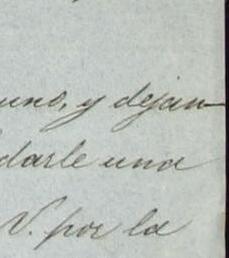 uno, y dejan-
darle una
V. por la